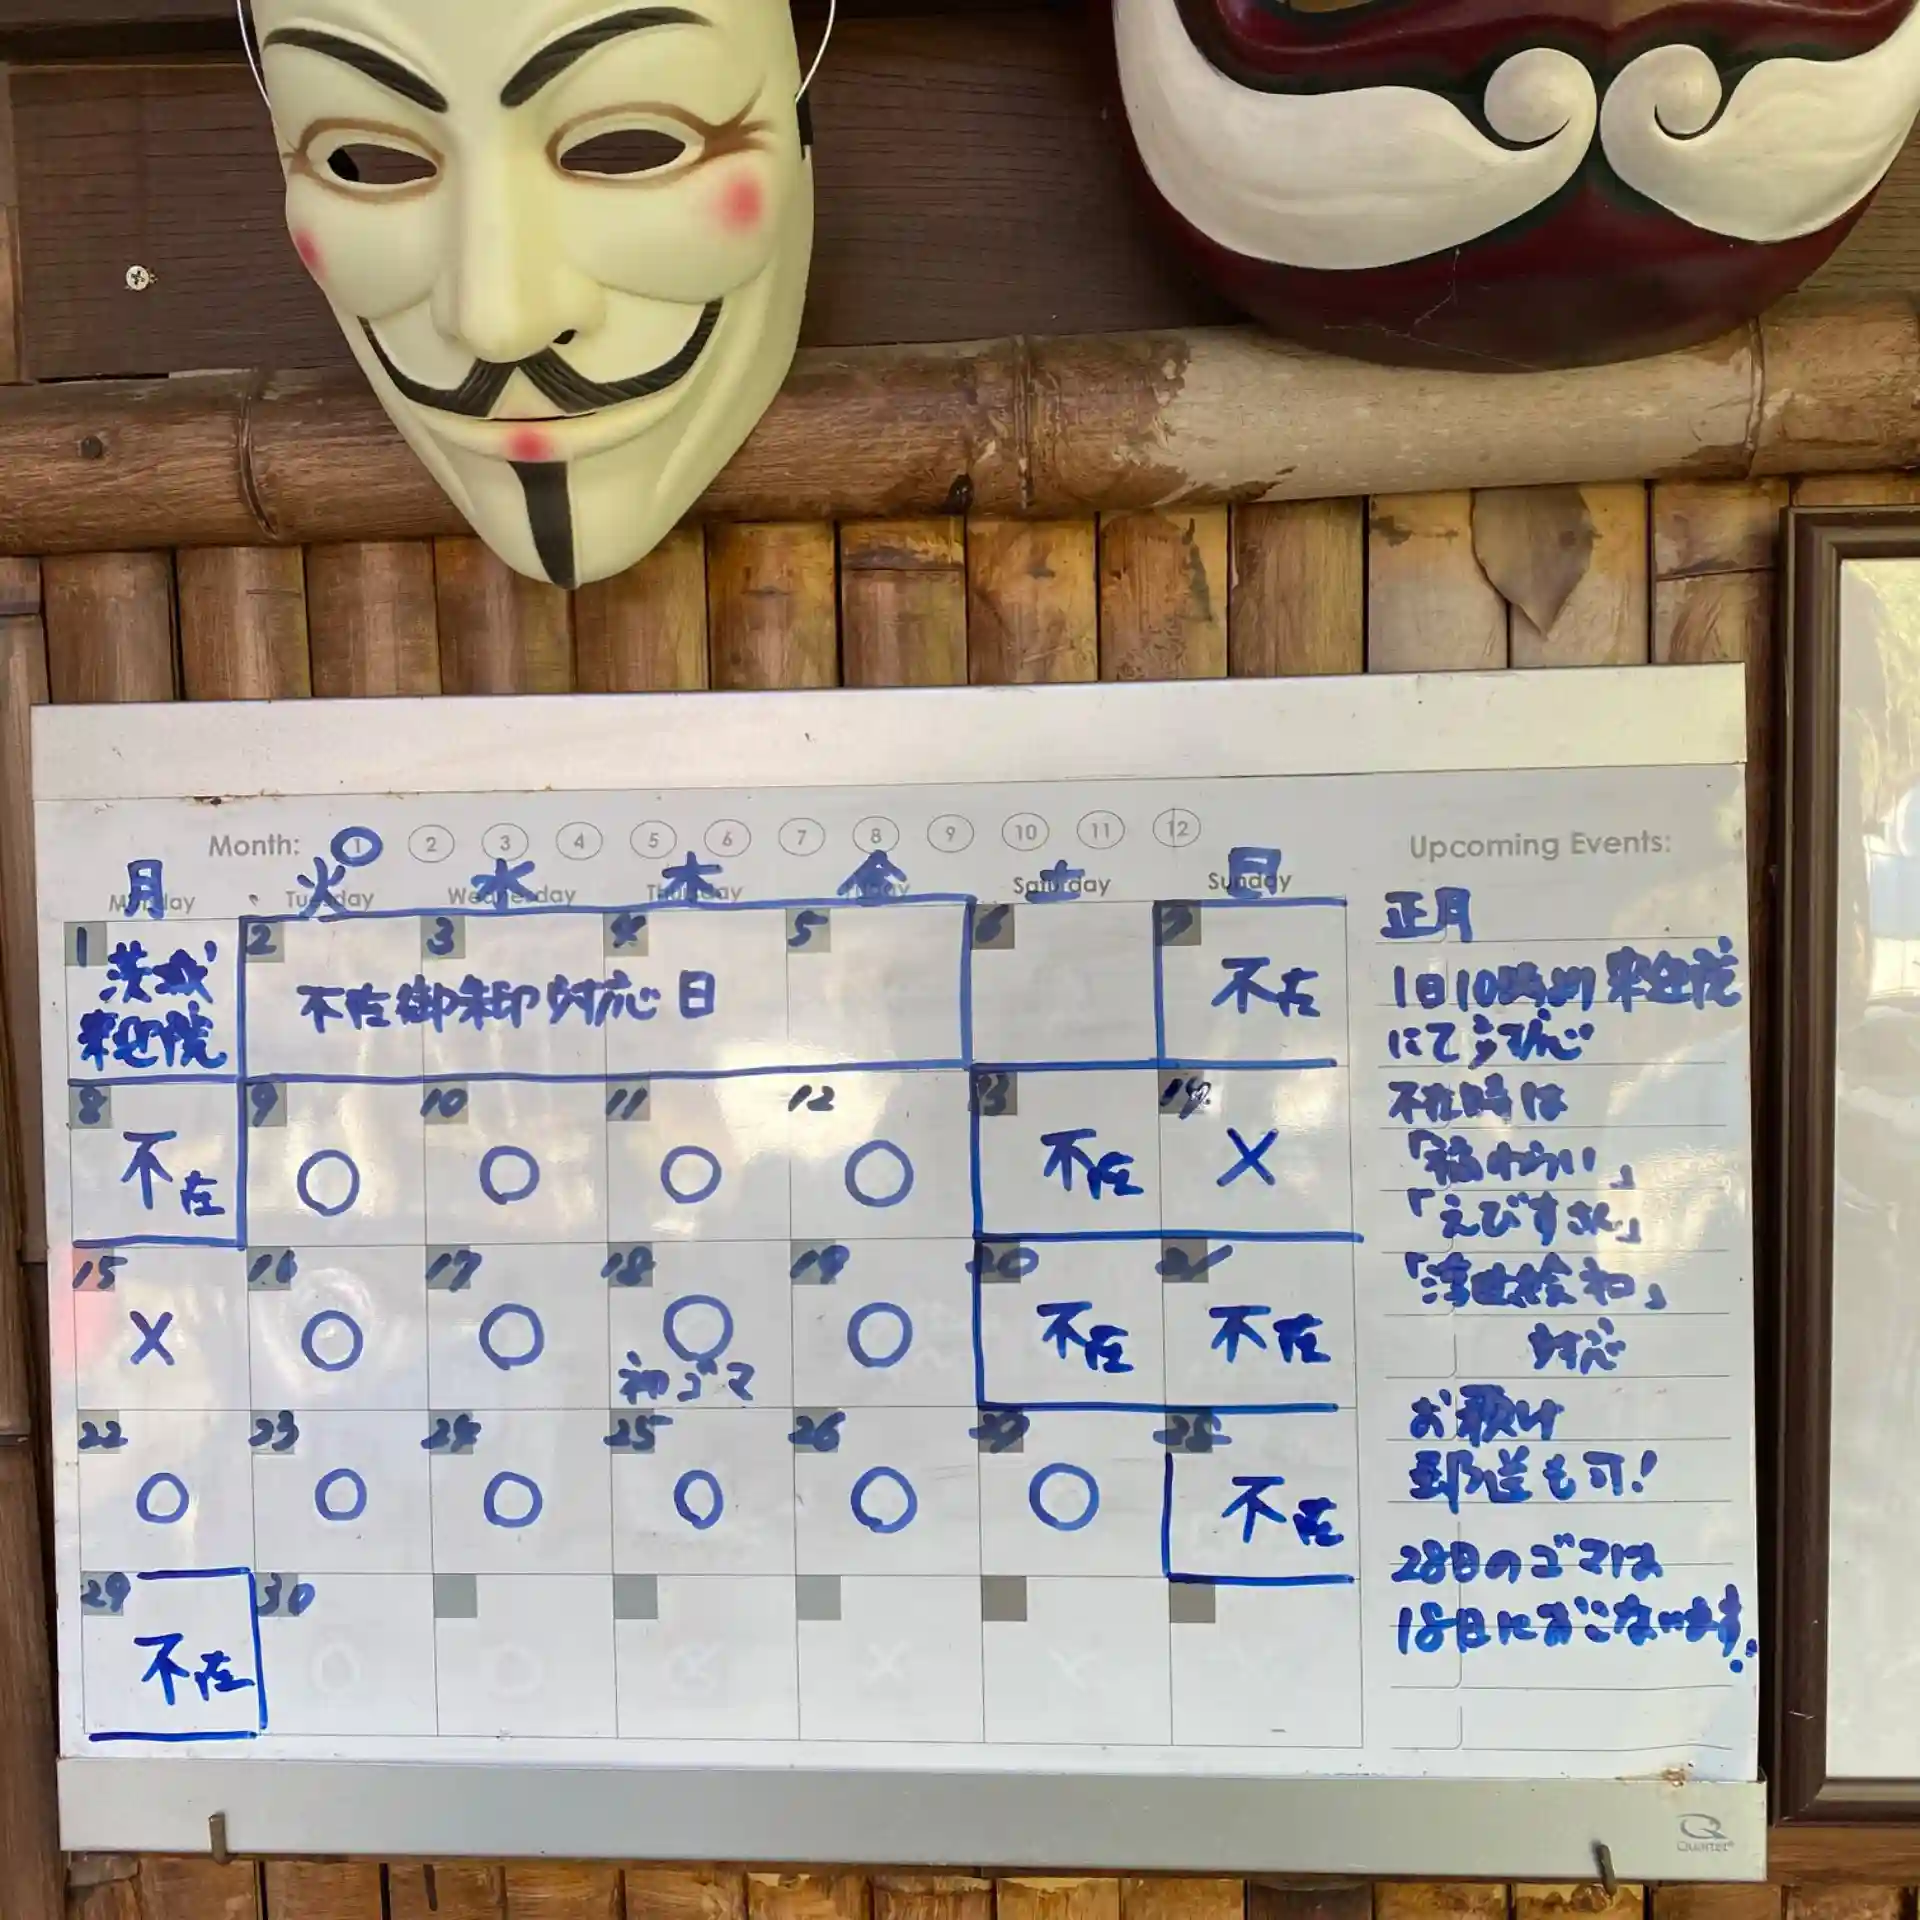 Month: 1 2 3 4 5 6 7 8 9 10 11 12
Upcoming Events:
月 火 水 木 金 土 日
Monday Tuesday Wednesday Thursday Friday Saturday Sunday
1 2 3 4 5 6 7
茨城
来迎院
不在御朱印対応日
不在
8 9 10 11 12 13 14
不在 ○ ○ ○ ○ 不在 X
15 16 17 18 19 20 21
X ○ ○ ○ ○ 不在 不在
初ゴマ
22 23 24 25 26 27 28
○ ○ ○ ○ ○ ○ 不在
29 30
不在
正月
1日10時 来迎院
にて
不在時は
「福わらい」
「えびすさん」
「浮世絵初」
対応
お声かけ
郵送も可!
28日のゴマは
18日におこないます。
Quartet